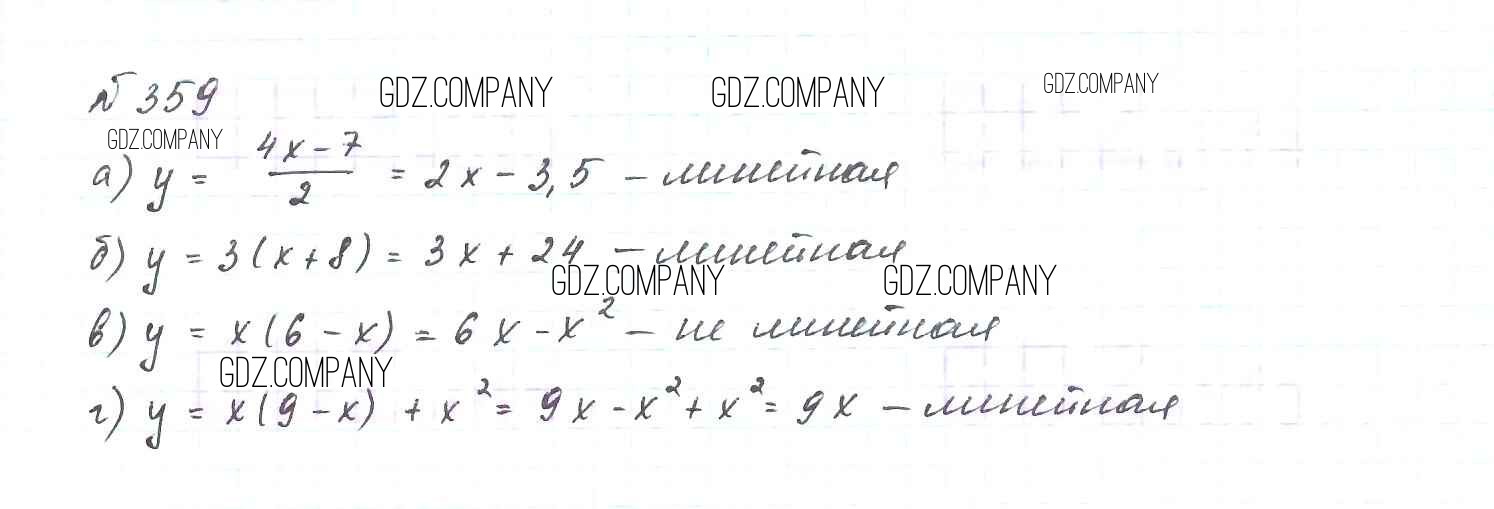 № 359
GDZ.COMPANY GDZ.COMPANY GDZ.COMPANY
GDZ.COMPANY
а) y = (4x - 7)/2 = 2x - 3,5 - линейная
б) y = 3(x+8) = 3x + 24 - линейная
GDZ.COMPANY GDZ.COMPANY
в) y = x(6 - x) = 6x - x² - не линейная
GDZ.COMPANY
г) y = x(9 - x) + x² = 9x - x² + x² = 9x - линейная